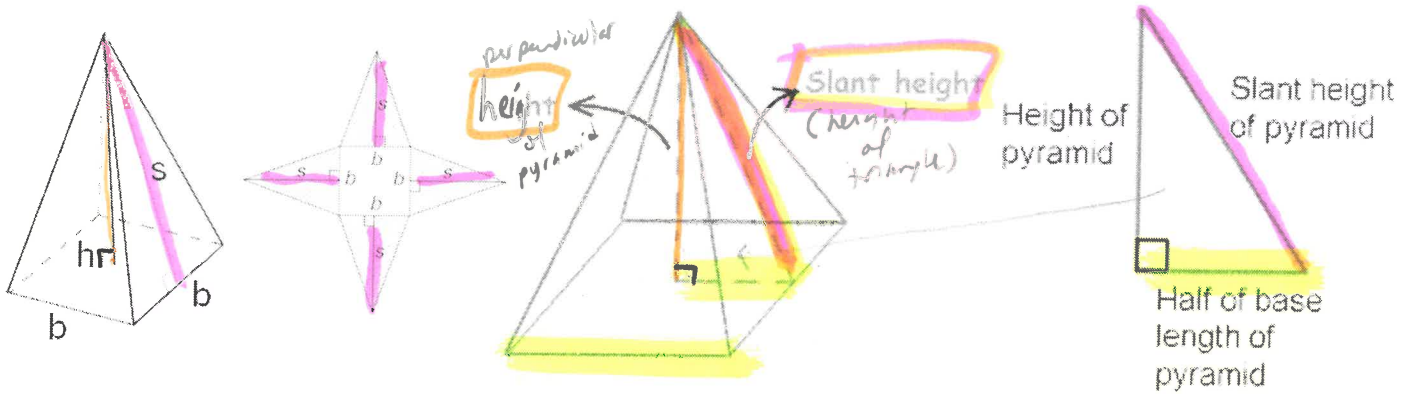 s
h
b
b
s
b
s
b
b
s
b
s
perpendicular
height
of
pyramid
Slant height
(height
of
triangle)
Height of
pyramid
Slant height
of pyramid
Half of base
length of
pyramid